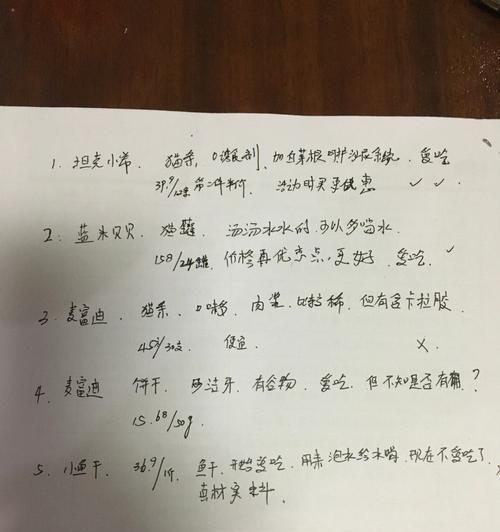 1. 坦克小希. 猫条, 口嗜良剂, 加白草根呵护泌尿系统. 爱吃
39.9/12条 第二件半价 活动时买更优惠 ✓ ✓
2. 蓝米贝贝. 猫罐. 汤汤水水的 可以多喝水
158/24罐. 价格再优惠点, 更好 爱吃. ✓
3. 麦富迪. 猫条. 口嗜, 肉浆. 比较稀. 但有含卡拉胶
45/30支 便宜 X.
4. 麦富迪 饼干. 洁牙. 有谷物. 爱吃. 但不知是否有用?
15.68/50g.
5. 小鱼干. 36.9/斤. 鱼干. 开始爱吃. 用来泡水给水喝, 现在不爱吃了
真材实料.